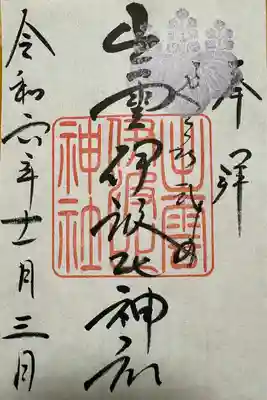 奉拝
出雲伊波比神社
出雲伊波比神社
令和六年十一月三日